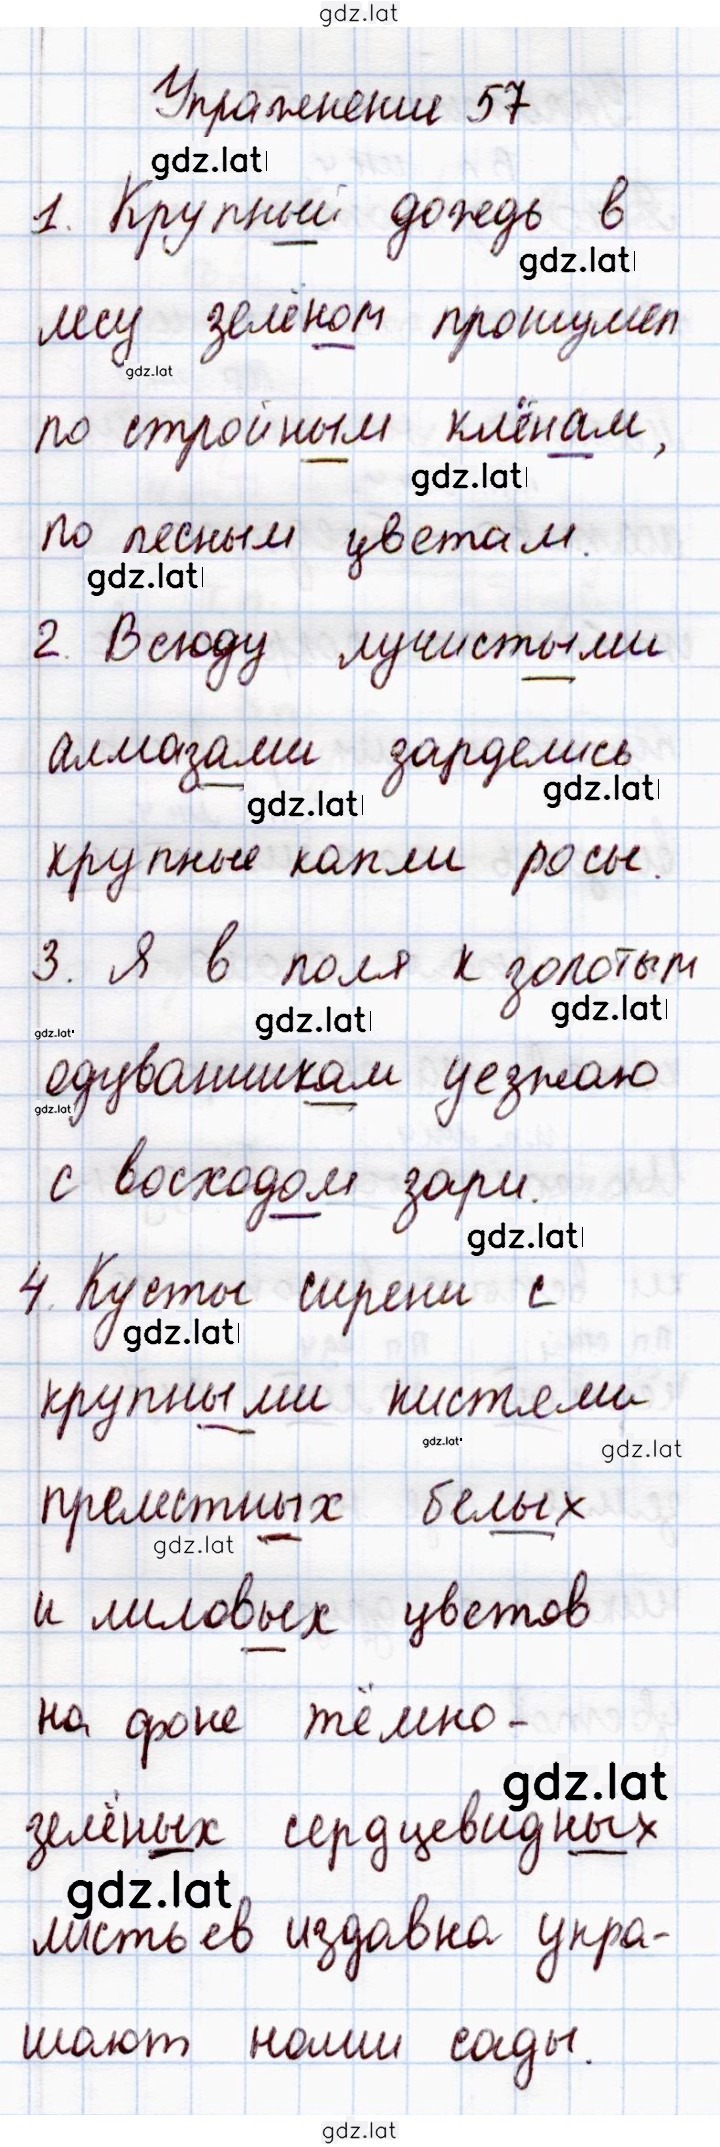 gdz.lat
Упражнение 57
gdz.lat
1. Крупный дождь в
gdz.lat
лесу зелёном прошумел
gdz.lat
по стройным клёнам,
gdz.lat
по лесным цветам.
gdz.lat
2. Всюду лучистыми
алмазами зарделись
gdz.lat gdz.lat
крупные капли росы.
3. Я в поля к золотым
gdz.lat gdz.lat gdz.lat
одуванчикам уезжаю
gdz.lat
с восходом зари.
gdz.lat
4. Кусты сирени с
gdz.lat
крупными кистями
gdz.lat gdz.lat
прелестных белых
gdz.lat
и лиловых цветов
на фоне тёмно-
gdz.lat
зелёных сердцевидных
gdz.lat
листьев издавна укра-
шают наши сады.
gdz.lat